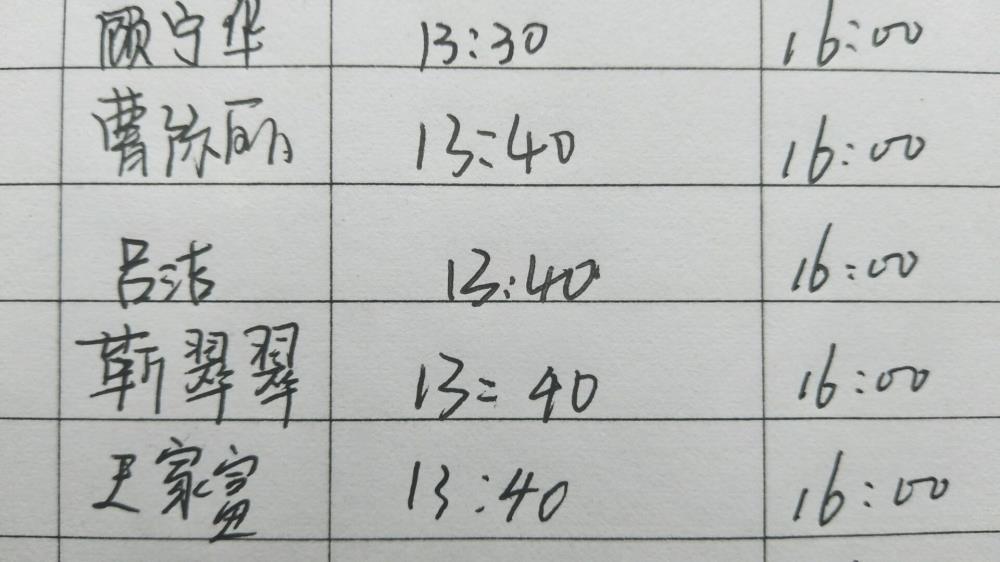 顾宁华 13:30 16:00
曹陈丽 13:40 16:00
吕洁 13:40 16:00
靳翠翠 13:40 16:00
家 13:40 16:00